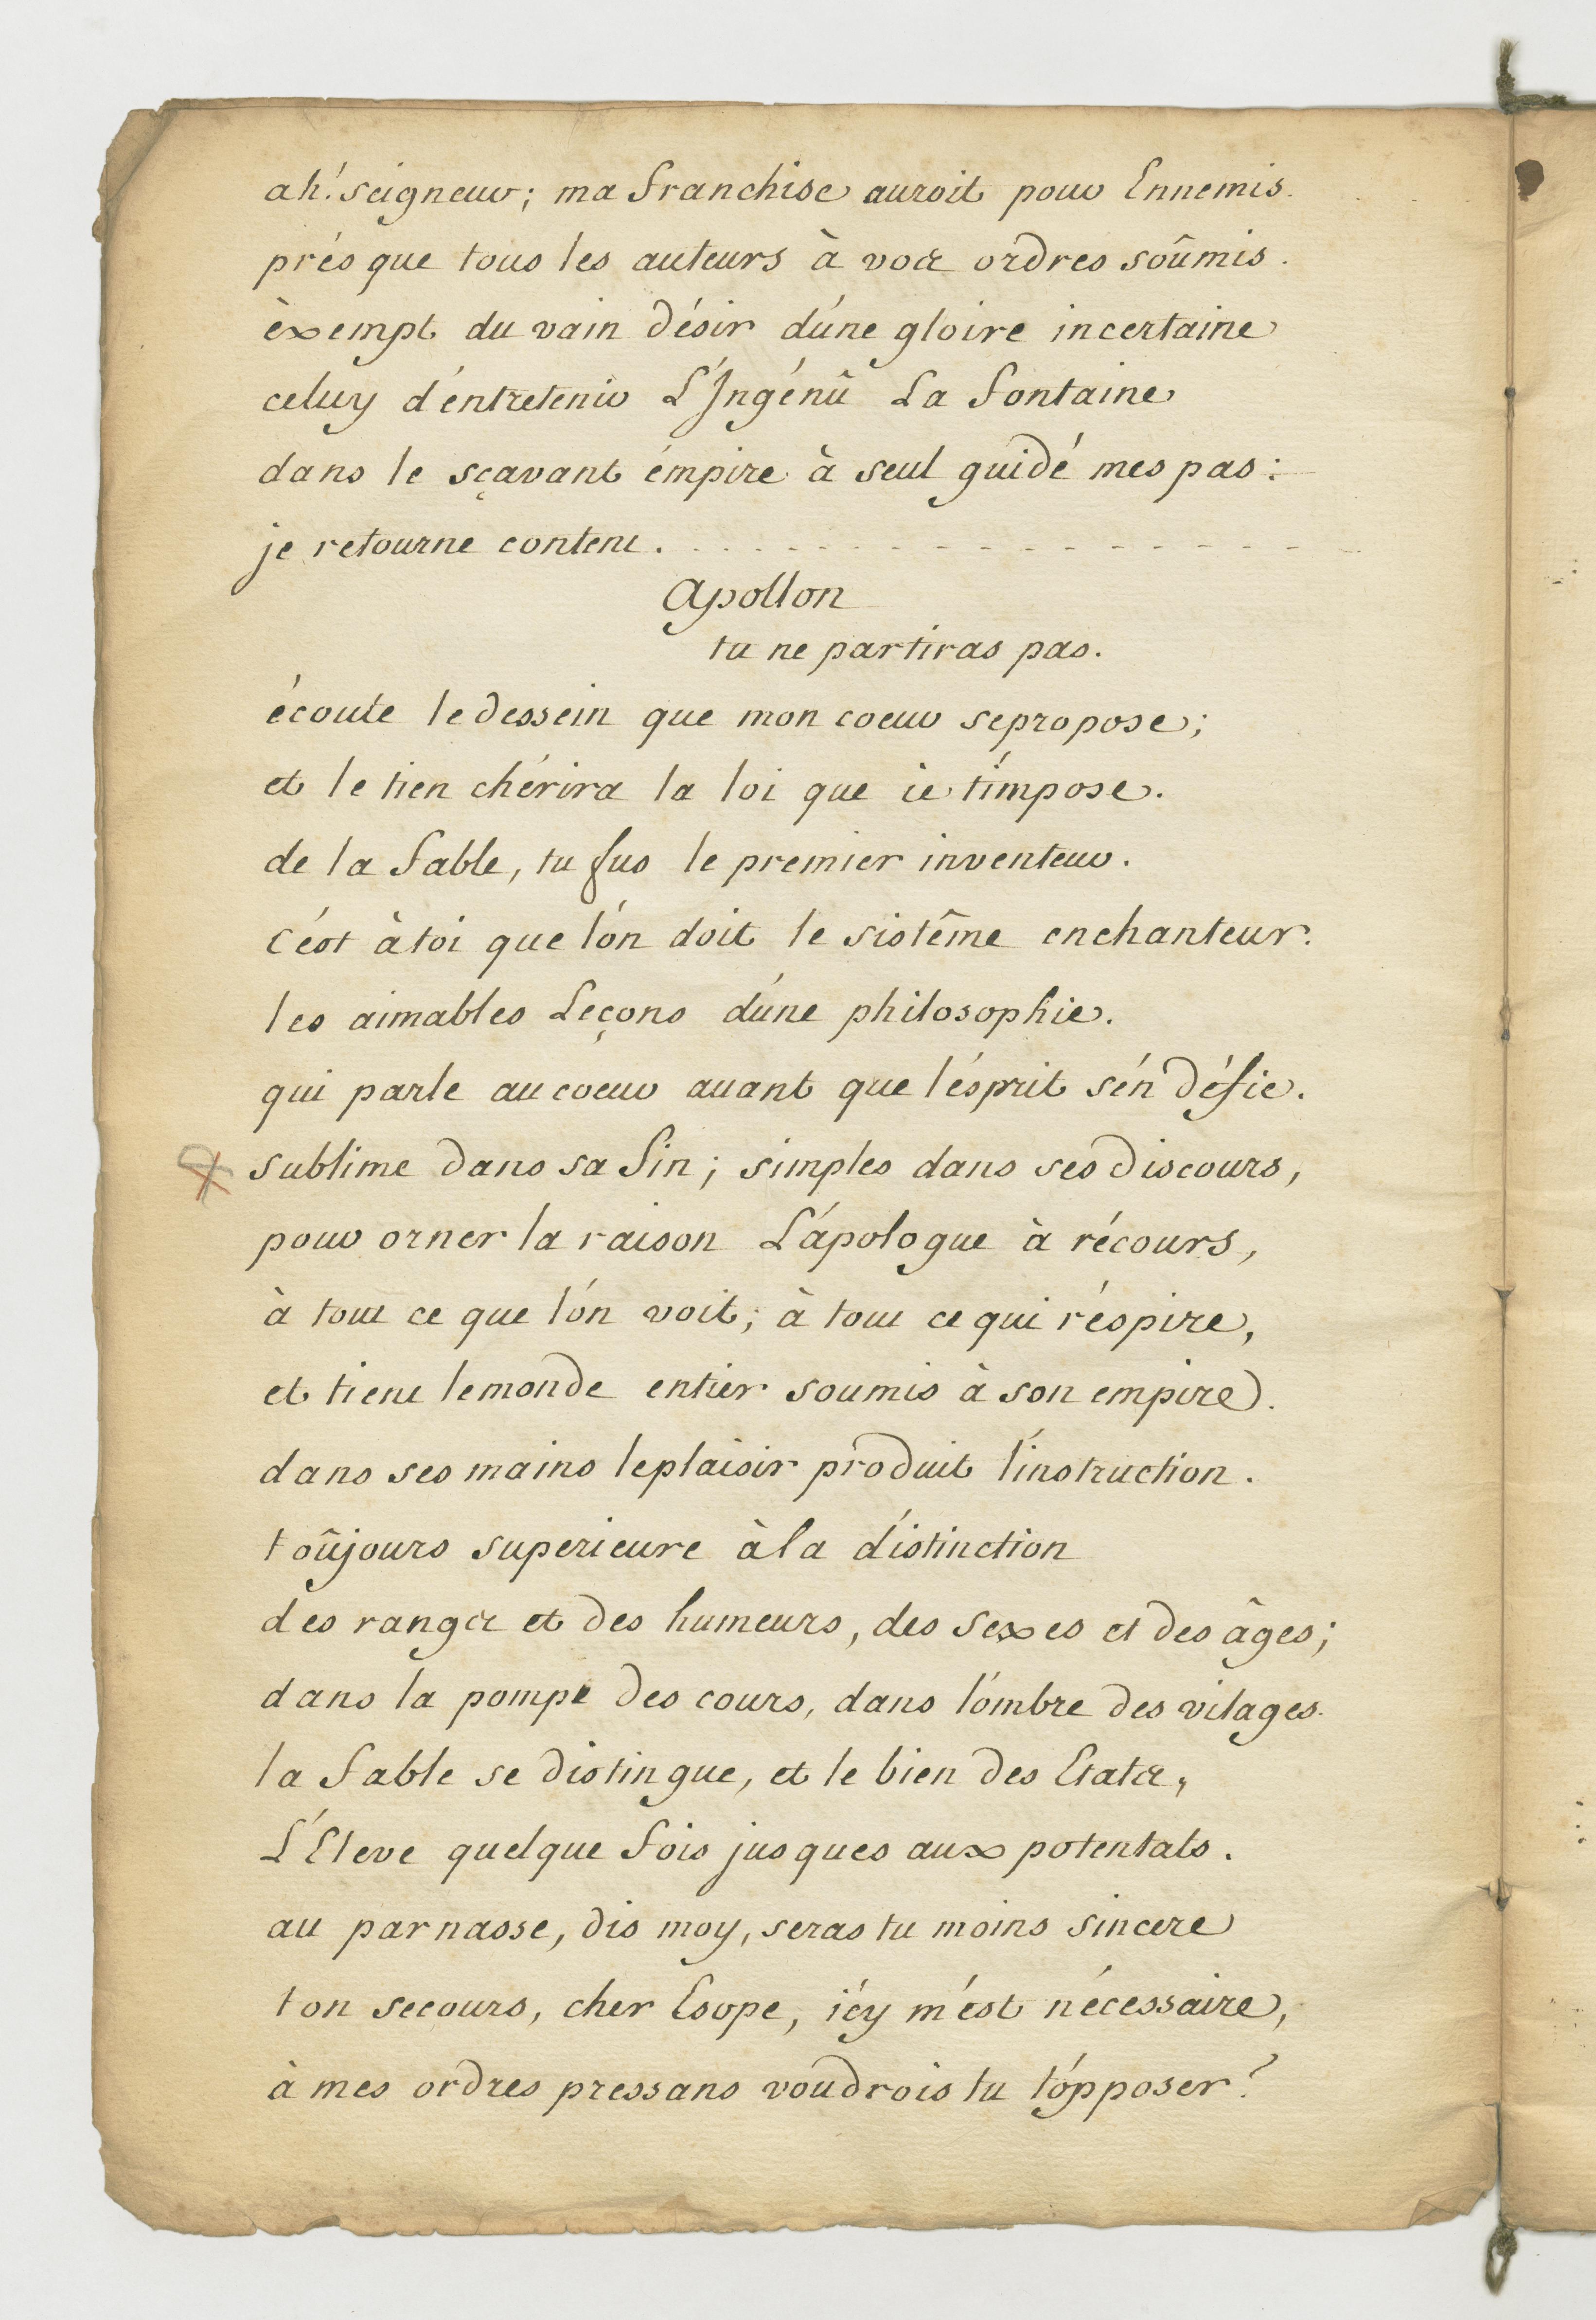 ah! seigneur; ma franchise auroit pour Ennemis.
présque tous les auteurs à vos ordres soûmis.
èxempt du vain désir d'úne gloire incertaine
celuy d'éntretenir L'Ingénû La fontaine
dans le sçavant émpire à seul guidé mes pas:
je retourne content. . . . . . . . . . . . . . . . . .
Apollon
tu ne partiras pas.
écoute le dessein que mon coeur se propose;
et le tien chérira la loi que ie t'impose.
de la fable, tu fus le premier inventeur.
C'ést à toi que l'ón doit le sistême enchanteur.
les aimables Leçons d'úne philosophie.
qui parle au coeur auant que l'ésprit s'én défie.
sublime dans sa fin; simples dans ses discours,
pour orner la raison L'ápologue à récours,
à tout ce que l'ón voit; à tout ce qui réspire,
et tient le monde entier soumis à son empire.
dans ses mains le plaisir produit l'instruction.
toûjours superieure à la distinction
des rangs et des humeurs, des sexes et des âges;
dans la pompe des cours, dans l'ómbre des vilages.
la fable se distingue, et le bien des Etats,
L'Eleve quelque fois jusques aux potentats.
au parnasse, dis moy, seras tu moins sincere
ton secours, cher Esope, icy m'ést nécessaire,
à mes ordres pressans voudrois tu t'ópposer?